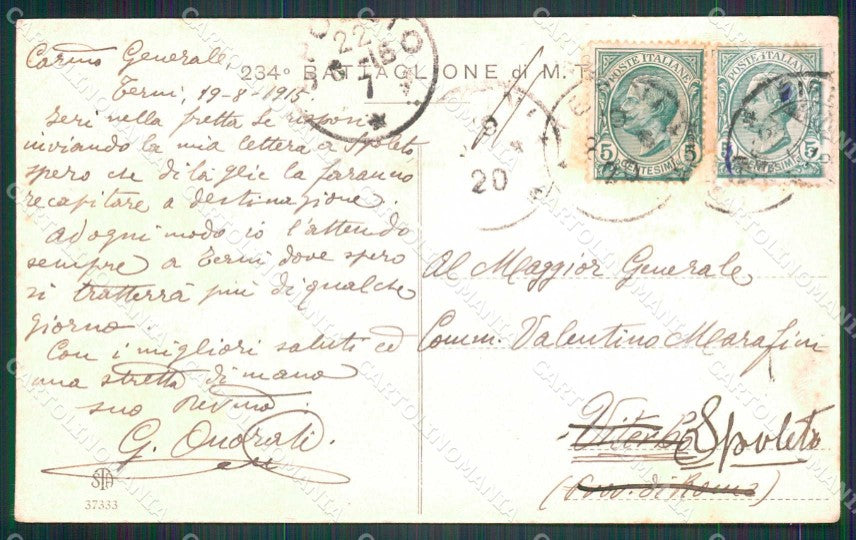 Carmo Generale
234° BATTAGLIONE di M. T.
Terni, 19-8-1915.
Ieri nella fretta le risposi
inviando la mia lettera a Spoleto
spero che di là glie la faranno
recapitare a destinazione.
Ad ogni modo io l'attendo
sempre a Terni dove spero
si tratterrà più di qualche
giorno.
Con i migliori saluti ed
una stretta di mano
suo
G. Onorati.
STA
37333
POSTE ITALIANE
5 CENTESIMI 5
POSTE ITALIANE
5 CENTESIMI 5
22
20
Al Maggior Generale
Comm. Valentino Marafini
Viterbo Spoleto
(Prov. di Roma)
CARTOLINOMANIA